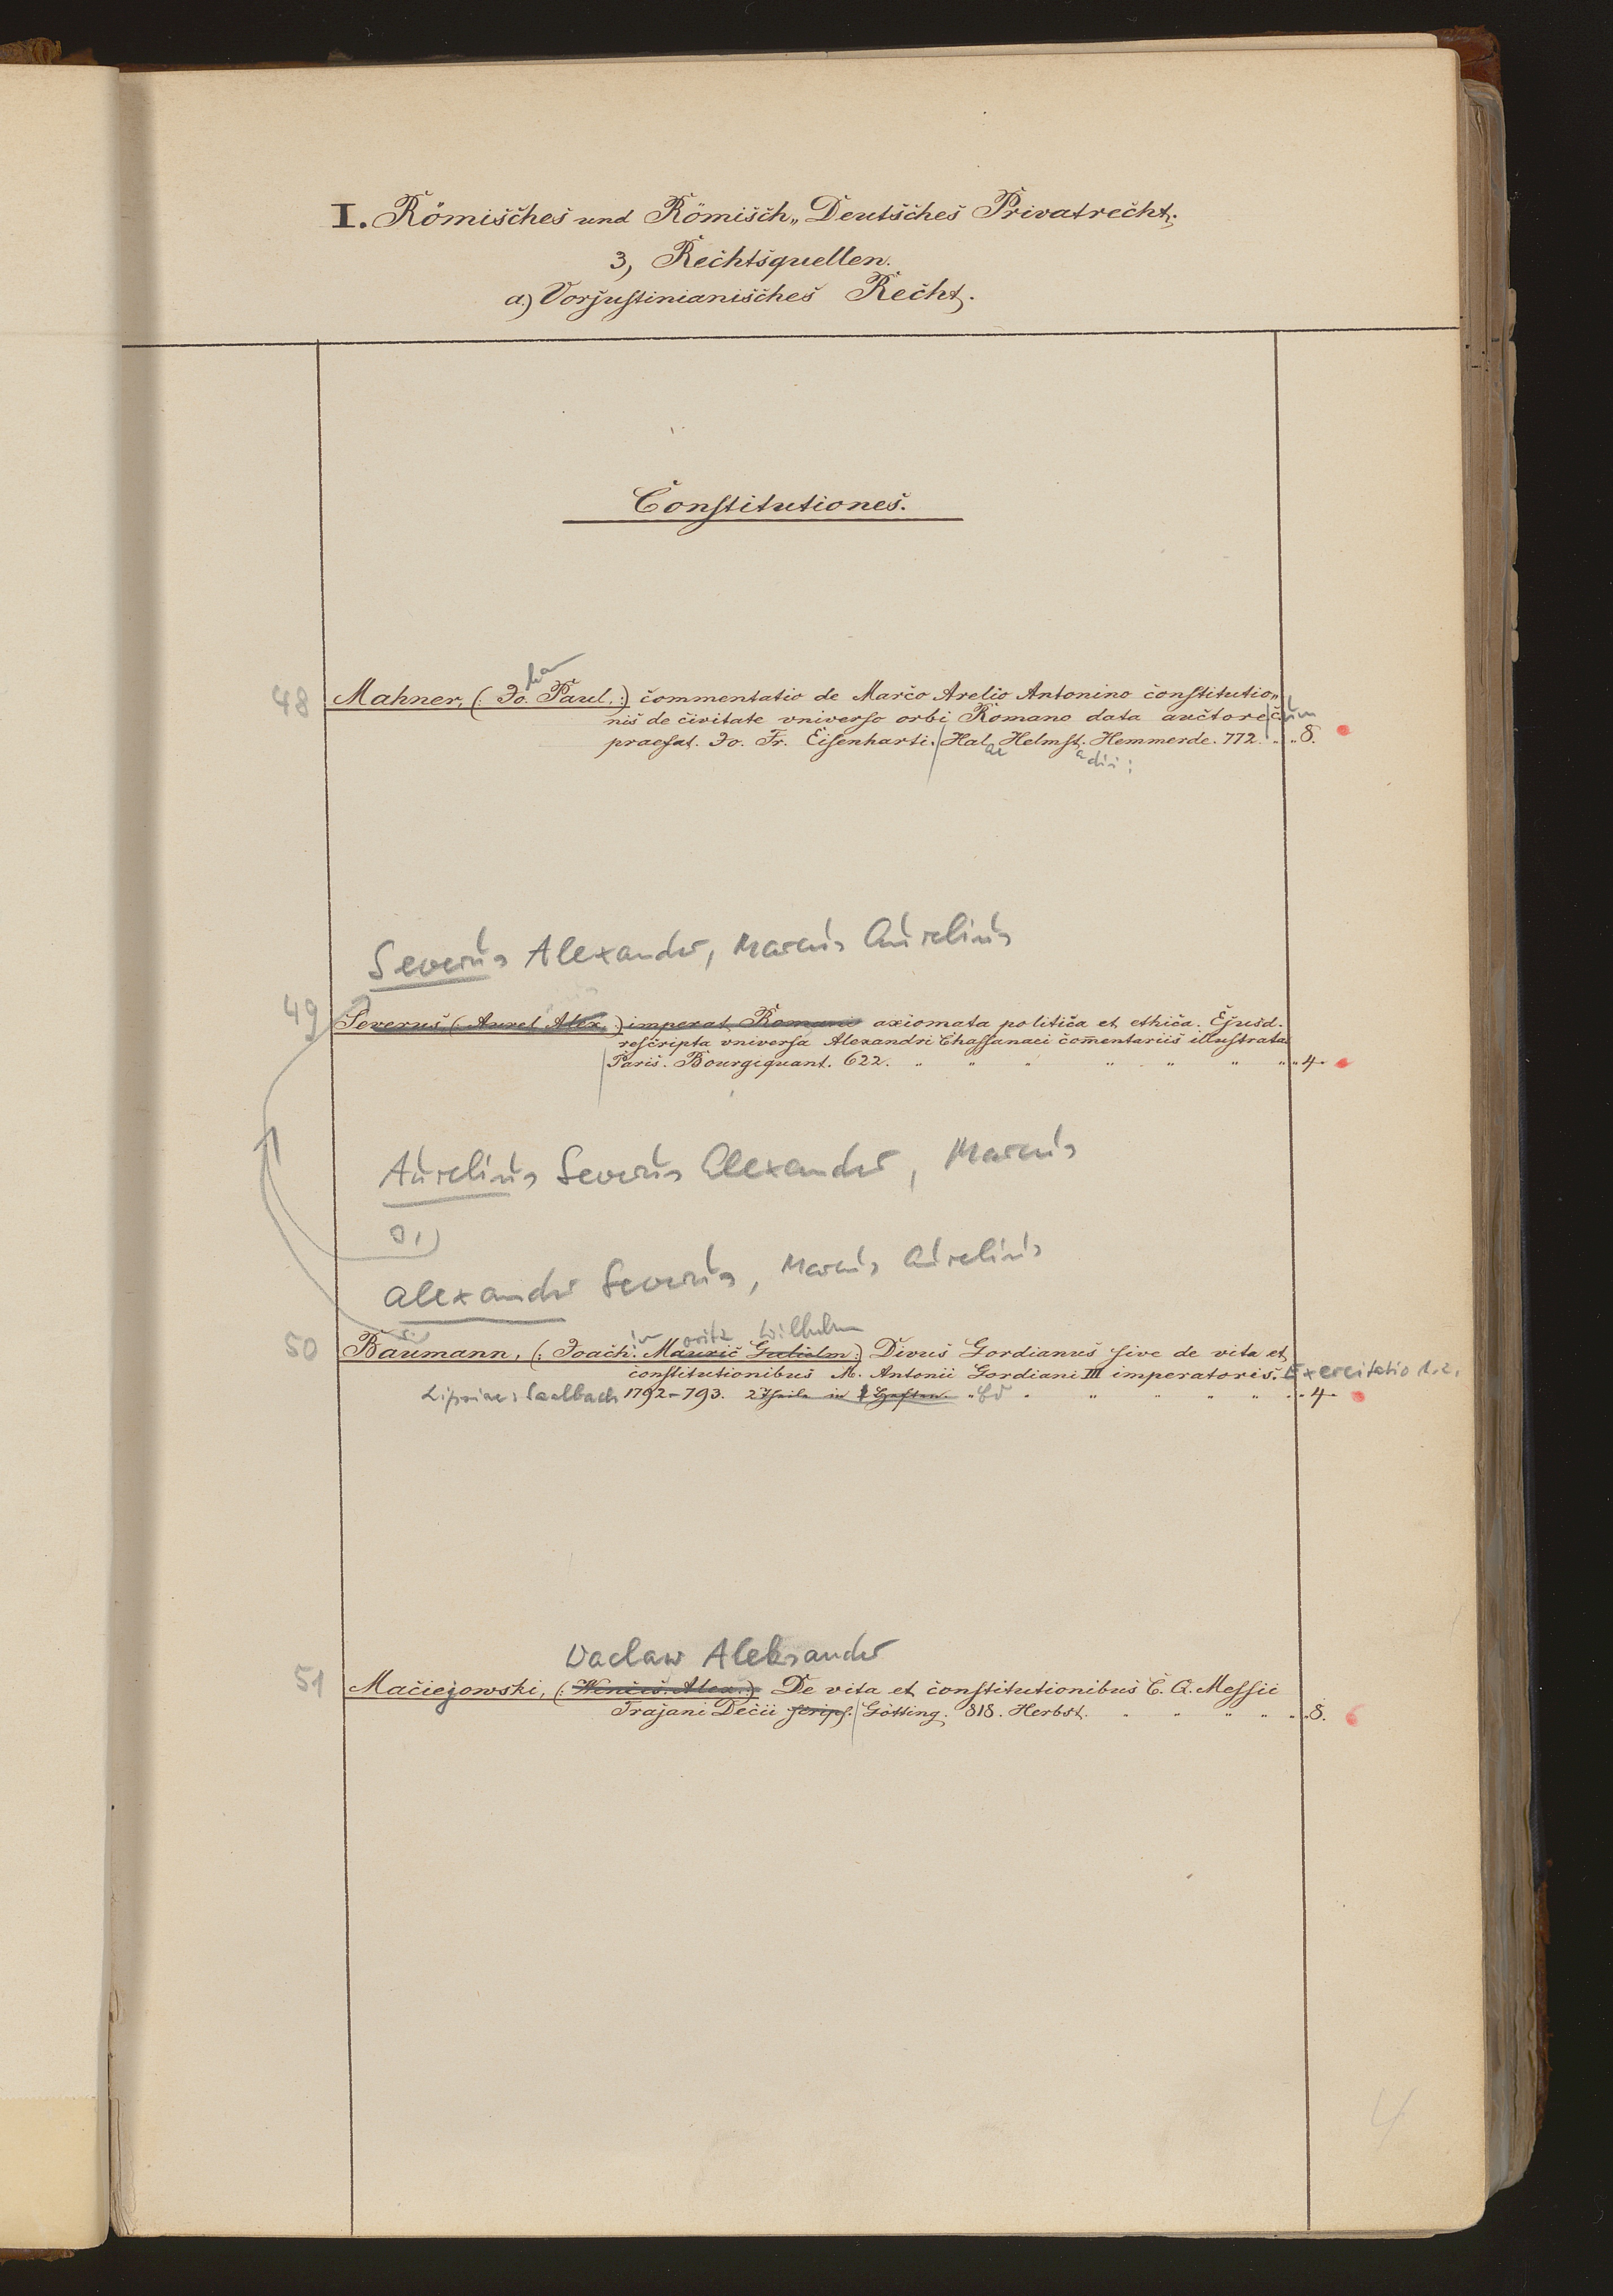 I. Römisches und Römisch„ Deutsches Privatrecht.
3, Rechtsquellen.
a) Vorjustinianisches Recht.
Constitutiones.
48 Mahner, (: Jo. Paul. :) commentatio de Marco Arelio Antonino constitutio„
nis de civitate vniverso orbi Romano data auctore c.
praefat. Jo. Fr. Eisenharti. Hal. Helmst. Hemmerde. 772. 8.
Severus Alexander, Marcus Aurelius
49 Severus (: Aurel Alex. :) imperat. Romani axiomata politica et ethica. Ejusd.
rescripta vniversa Alexandri Chassanaei comentariis illustrata
Paris. Bourgiquant. 622. 4
Aurelius Severus Alexander, Marcus
Alexander Severus, Marcus Aurelius
oritz Wilhelm
50 Baumann, (: Joach. Mauric Gulielm :) Divus Gordianus sive de vita et
constitutionibus M. Antonii Gordiani III imperatoris. Exercitatio 1.2.
Lipsiae: Saalbach 1792-793. 2 Theile in 1 Heften. Bd 4
Waclaw Aleksander
51 Maciejowski, (: Wences. Alex. :) De vita et constitutionibus C. Q. Messii
Trajani Decii scrips. Götting. 818. Herbst. 8.
4